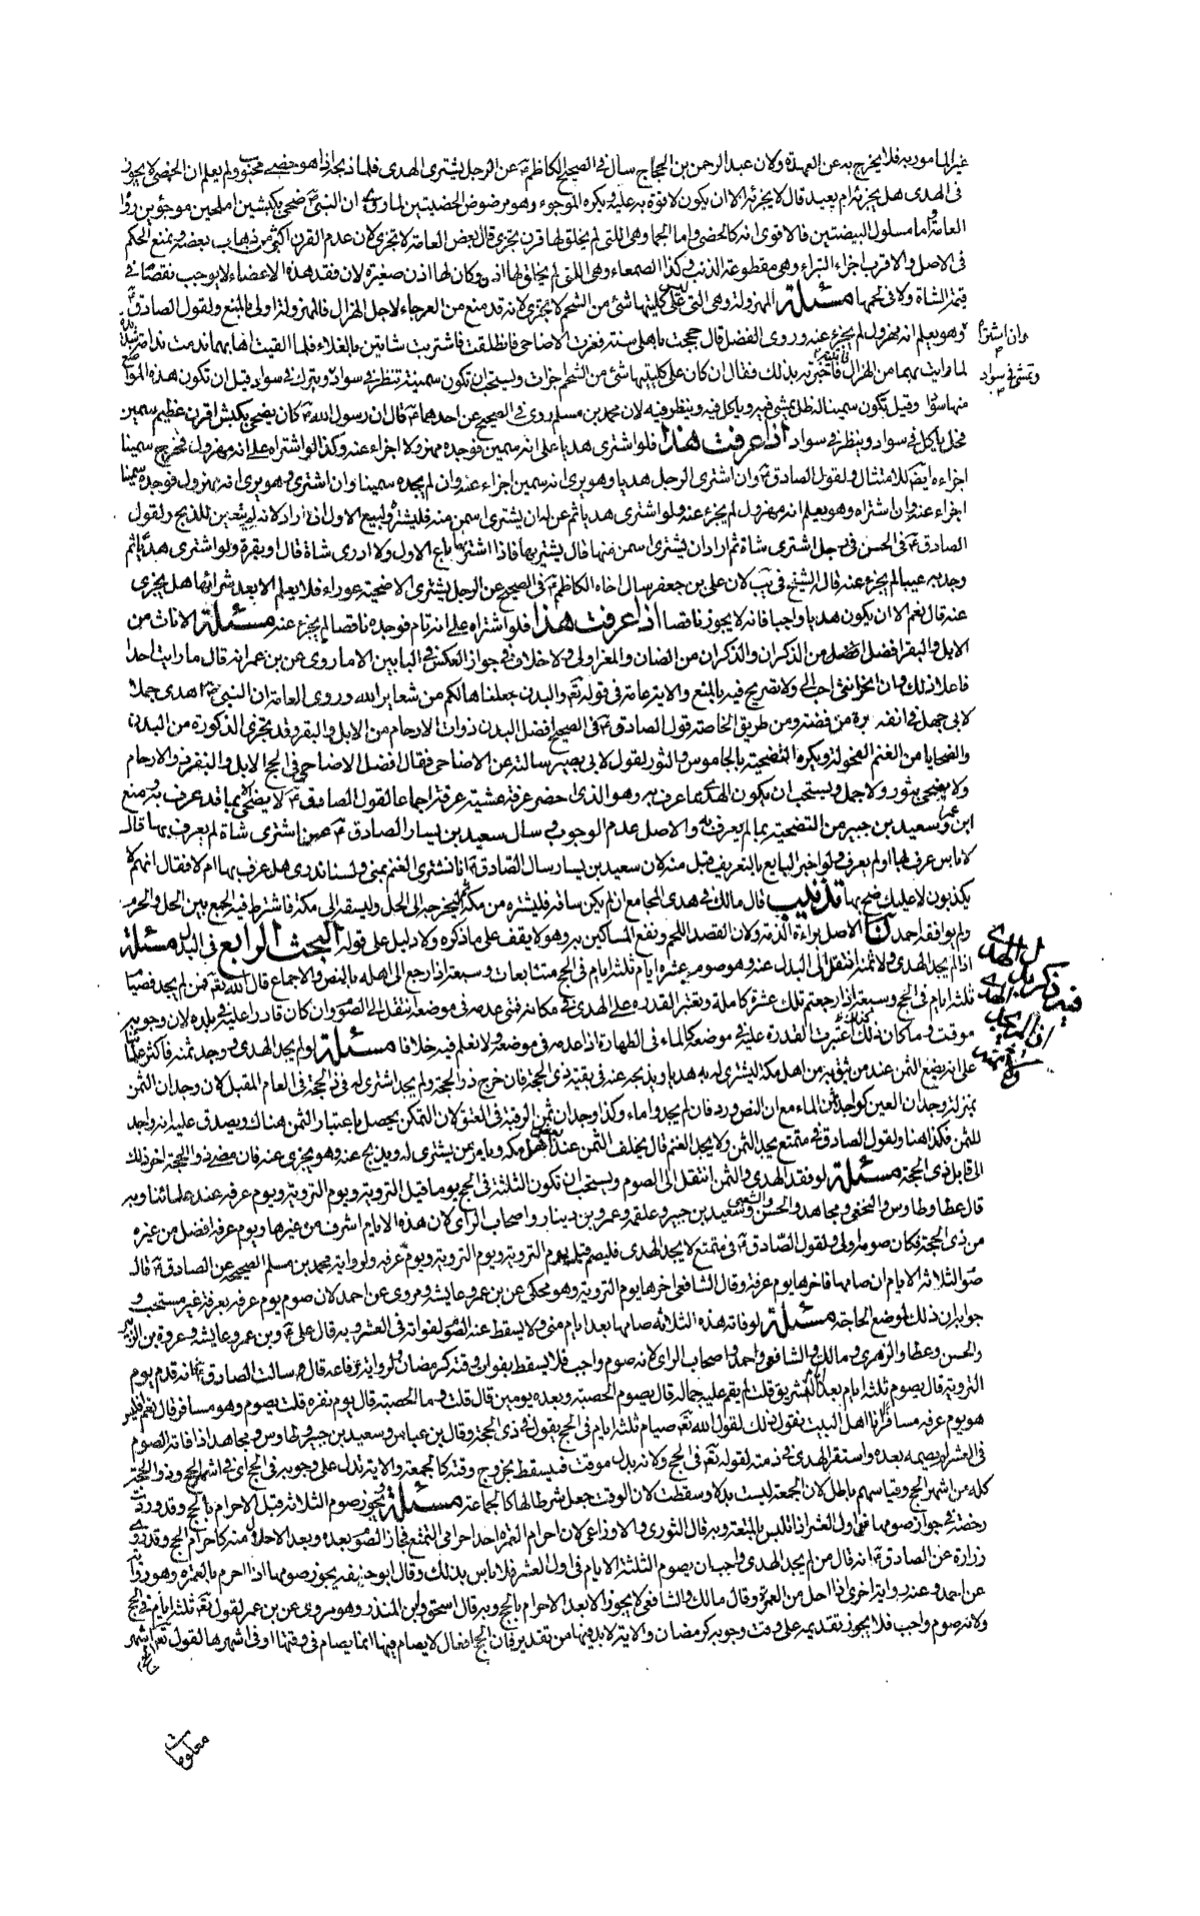 غير المأمور به فلا يخرج به عن العهدة ولان عبد الرحمن بن الحجاج سال في الصحيح الكاظم ع عن الرجل يشترى الهدى فلما ذبحه اذا هو خصى مجبوب ولم يعلم ان الخصى لا يجوز
في الهدى هل يجزئه ام يعيد قال لا يجزئه الا ان يكون لا قوة به عليه ويكره الموجوء وهو مرضوض الخصيتين لما روى ان النبي ص ضحى بكبشين املحين موجوئين رواه
العامة واما مسلول البيضتين فالاقوى انه كالخصى واما الجما وهي التى لم يخلق لها قرن يجزى قال بعض العامة لا تجزى لان عدم القرن اكثر من ذهاب بعضه ونمنع الحكم
في الاصل والاقرب اجزاء البتراء وهي مقطوعة الذنب وكذا الصمعاء وهي التى لم يخلق لها اذن وكان لها اذن صغيرة لان فقد هذه الاعضاء لا يوجب نقصا في
قيمة الشاة ولا في لحمها مسئلة المهزولة وهي التى ليس على كليتها شئ من الشحم لا تجزى لانه قد منع من العرجاء لاجل الهزال فالمهزولة اولى بالمنع ولقول الصادق ع
وان اشتراه
وهو يعلم انه مهزول لم يجزء عنه وروى الفضل قال حججت باهلى سنة فعزت الاضاحى فانطلقت فاشتريت شاتين بالغلاء فلما القيت اهابهما ندمت ندامة شديدة
لما رايت بهما من الهزال فاتيته فاخبرته بذلك فقال ان كان على كليتيهما شئ من الشحم اجزات ويستحب ان تكون سمينة تنظر في سواد وتبرك في سواد قيل ان تكون هذه المواضع
وتمشى في سواد
منها سود وقيل يكون سمينا له ظل يمشى فيه وياكل فيه وينظر فيه لان محمد بن مسلم روى في الصحيح عن احدهما ع قال ان رسول الله ص كان يضحى بكبش اقرن عظيم سمين
فحل ياكل في سواد وينظر في سواد اذا عرفت هذا فلو اشترى هديا على انه سمين فوجده مهزولا اجزاء عنه وكذا لو اشتراه على انه مهزول فخرج سمينا
اجزاءه ايضا للامتثال ولقول الصادق ع وان اشترى الرجل هديا وهو يرى انه سمين اجزاء عنه وان لم يجده سمينا وان اشترى وهو يرى انه مهزول فوجده سمينا
اجزاء عنه وان اشتراه وهو يعلم انه مهزول لم يجزء عنه ولو اشترى هديا ثم عن له ان يشترى اسمن منه فليشتره وليبع الاول اذا اراد لانه لم يتعين للذبح ولقول
الصادق ع في الحسن في رجل اشترى شاة ثم اراد ان يشترى اسمن منها قال يشتريها فاذا اشتراها باع الاولى ولا ادرى شاة قال او بقرة ولو اشترى هديا ثم
وجد به عيبا لم يجزء عنه قاله الشيخ في يب لان على بن جعفر سال اخاه الكاظم ع في الصحيح عن الرجل يشترى الاضحية عوراء فلا يعلم الا بعد شرائها هل يجزى
عنه قال نعم الا ان يكون هديا واجبا فانه لا يجوز ناقصا اذا عرفت هذا فلو اشتراه على انه تام فوجده ناقصا لم يجزء عنه مسئلة الاناث من
الابل والبقر افضل من الذكران والذكران من الضان والمعز اولى ولا خلاف في جواز العكس في البابين الا ما روى عن بن عمر انه قال ما رايت احدا
فاعلا ذلك وان انحر انثى احب الى ولا تصريح فيه بالمنع والاية عامة في قوله تع والبدن جعلناها لكم من شعاير الله وروى العامة ان النبي ص اهدى جملا
لابى جهل في انفه برة من فضة ومن طريق الخاصة قول الصادق ع في الصحيح افضل البدن ذوات الارحام من الابل والبقر وقد يجزى الذكورة من البدن
والضحايا من الغنم الفحولة ويكره التضحية بالجاموس والثور لقول ابى بصير سالته عن الاضاحى فقال افضل الاضاحى في الحج الابل والبقر ذو الارحام
ولا يضحى بثور ولا جمل ويستحب ان يكون الهدى مما عرف به وهو الذى احضر عرفة عشية عرفة اجماعا لقول الصادق ع لا يضحى الا بما قد عرف به ومنع
ابن عمر وسعيد بن جبير من التضحية بما لم يعرف به والاصل عدم الوجوب وسال سعيد بن يسار الصادق ع عمن اشترى شاة لم يعرف بها قال
لا باس عرف بها او لم يعرف ولو اخبر البايع بالتعريف قبل منه لان سعيد بن يسار سال الصادق ع انا نشترى الغنم بمنى ولسنا ندرى هل عرف بها ام لا فقال انهم لا
يكذبون لا عليك ضح بها تذنيب قال مالك في هدى المجامع ان لم يكن ساقه فليشتره من مكة ثم ليخرجه الى الحل وليسقه الى مكة فاشترط فيه الجمع بين الحل والحرم
ولم يوافقه احد لنا الاصل براءة الذمة ولان القصد اللحم ونفع المساكين به وهو لا يقف على ما ذكره ولا دليل على قوله البحث الرابع في البدل مسئلة
اذا لم يجد الهدى ولا ثمنه انتقل الى البدل عنه وهو صوم عشرة ايام ثلثة ايام في الحج متتابعات وسبعة اذا رجع الى اهله بالنص والاجماع قال الله تع فمن لم يجد فصيام
ثلثة ايام في الحج وسبعة اذا رجعتم تلك عشرة كاملة ويعتبر القدرة على الهدى في مكانه فمتى عدمه في موضعه انتقل الى الصوم وان كان قادرا عليه في بلده لان وجوبه
موقت وما كان كذلك اعتبرت القدرة عليه في موضعه كالماء في الطهارة اذا عدمه في موضعه ولا نعلم فيه خلافا مسئلة لو لم يجد الهدى ووجد ثمنه فاكثر علمائنا
على انه يضع الثمن عند من يثق به من اهل مكة ليشترى له به هديا ويذبحه عنه في بقية ذى الحجة فان خرج ذو الحجة ولم يجد اشترى له في ذى الحجة في العام المقبل لان وجدان الثمن
بمنزلة وجدان العين كواجد ثمن الماء مع ان النص ورد فان لم تجدوا ماء وكذا وجدان ثمن الرقبة في العتق لان التمكن يحصل باعتبار الثمن هناك ويصدق عليه انه واجد
للثمن فكذا هنا ولقول الصادق ع في متمتع يجد الثمن ولا يجد الغنم قال يخلف الثمن عند بعض اهل مكه ويامر من يشترى له ويذبح عنه وهو يجزى عنه فان مضى ذو الحجة اخر ذلك
الى قابل ذى الحجة مسئلة لو فقد الهدى والثمن انتقل الى الصوم ويستحب ان تكون الثلثة في الحج يوما قبل التروية ويوم التروية ويوم عرفه عند علمائنا وبه
قال عطا وطاوس والنخعى ومجاهد والحسن والشعبى وسعيد بن جبير وعلقمة وعمرو بن دينار واصحاب الراى لان هذه الايام اشرف من غيرها ويوم عرفه افضل من غيره
من ذى الحجة فكان صومه اولى ولقول الصادق ع في متمتع لا يجد الهدى فليصم قبل يوم التروية ويوم التروية ويوم عرفه ولرواية محمد بن مسلم الصحيحة عن الصادق ع قال
صوم الثلاثة الايام ان صامها فاخرها يوم عرفة وقال الشافعى اخرها يوم التروية وهو محكى عن بن عمر وعايشه ومروى عن احمد لان صوم يوم عرفه بعرفة غير مستحب و
جوابه ان ذلك لموضع الحاجة مسئلة لو فاته هذه الثلاثة صامها بعد ايام منى ولا يسقط عنه الصوم لفواته في العشر وبه قال على ع وبن عمر وعايشه وعروة بن الزبير
والحسن وعطا والزهرى ومالك والشافعى واحمد واصحاب الراى لانه صوم واجب فلا يسقط بفوات وقته كرمضان ولرواية رفاعة قال سالت الصادق ع فانه قدم يوم
التروية قال يصوم ثلثة ايام بعد التشريق قلت لم يقم عليه جماله قال يصوم الحصبة وبعده يومين قال قلت وما الحصبة قال يوم نفره قلت يصوم وهو مسافر قال نعم افليس
هو يوم عرفه مسافرا انا اهل البيت نقول ذلك لقول الله تع صيام ثلثة ايام في الحج يقول في ذى الحجة وقال بن عباس وسعيد بن جبير وطاوس ومجاهد اذا فاته الصوم
في العشر لم يصمه بعده واستقر الهدى في ذمته لقوله تع في الحج ولانه بدل موقت فيسقط بخروج وقته كالجمعة والاية تدل على وجوبه في الحج اى في اشهر الحج وذو الحجة
كله من اشهر الحج وقياسهم باطل لان الجمعة ليست بدلا وسقطت لان الوقت جعل شرطا لها كالجماعة مسئلة ويجوز صوم الثلاثة قبل الاحرام بالحج وقد وردت
رخصة في جواز صومها في اول العشر اذا تلبس بالمتعة وبه قال الثورى والاوزاعى لان احرام العمرة احد احرامى التمتع فجاز الصوم بعده وبعد الاحلال منه كاحرام الحج وقد روى
زرارة عن الصادق ع انه قال من لم يجد الهدى واحب ان يصوم الثلثة الايام في اول العشر فلا باس بذلك وقال ابو حنيفه يجوز صومها اذا احرم بالعمرة وهو رواية
عن احمد وعنه رواية اخرى اذا احل من العمرة وقال مالك والشافعى لا يجوز الا بعد الاحرام بالحج وبه قال اسحق وابن المنذر وهو مروى عن بن عمر لقوله تع ثلثة ايام في الحج
ولانه صوم واجب فلا يجوز تقديمه على وقت وجوبه كرمضان والاية لا بد فيها من تقدير فان الحج افعال لا يصام فيها انما يصام في وقتها او في اشهرها لقول تع الحج اشهر
معلومات